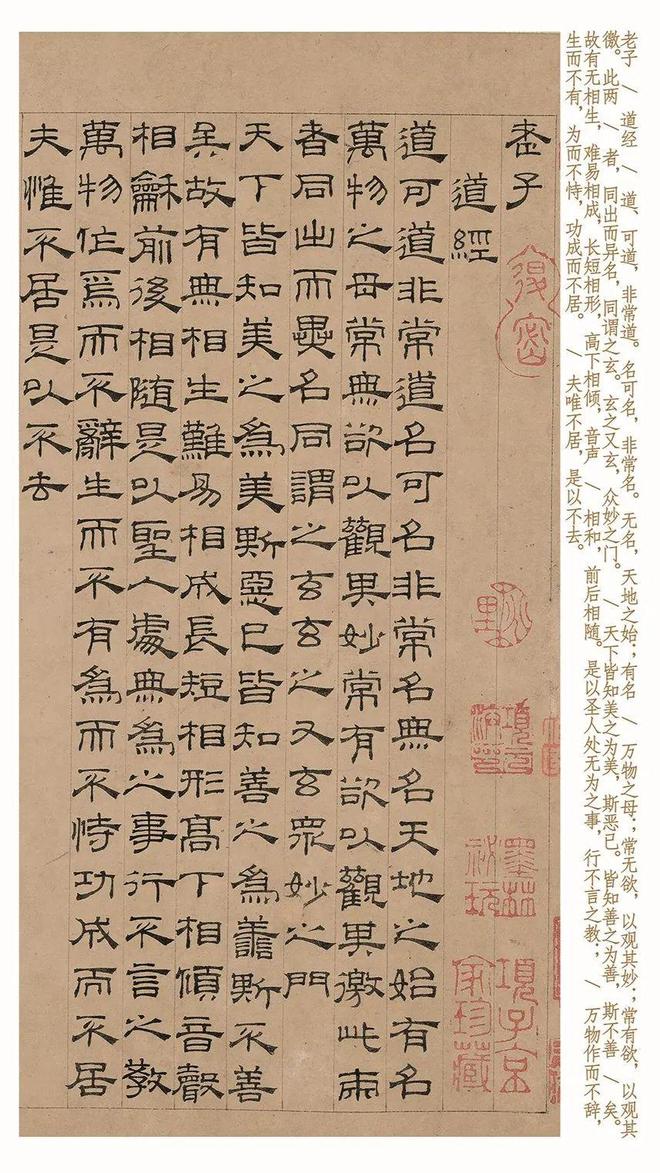 老子 \ 道经 \ 道，可道，非常道。名可名，非常名。无名，天地之始；有名 \ 万物之母；常无欲，以观其妙；常有欲，以观其
徼。此两 \ 者，同出而异名，同谓之玄。玄之又玄，众妙之门。 \ 天下皆知美之为美，斯恶已。皆知善之为善，斯不善 \ 矣。
故有无相生，难易相成，长短相形，高下相倾，音声 \ 相和，前后相随。是以圣人处无为之事，行不言之教； \ 万物作而不辞，
生而不有，为而不恃，功成而不居。 \ 夫唯不居，是以不去。
老子
道經
道可道非常道名可名非常名無名天地之始有名
萬物之母常無欲以觀其妙常有欲以觀其徼此兩
者同出而異名同謂之玄玄之又玄眾妙之門
天下皆知美之為美斯惡已皆知善之為善斯不善
矣故有無相生難易相成長短相形高下相傾音聲
相龢前後相隨是以聖人處無為之事行不言之教
萬物作焉而不辭生而不有為而不恃功成而不居
夫惟不居是以不去
墨林祕玩
項子京家珍藏